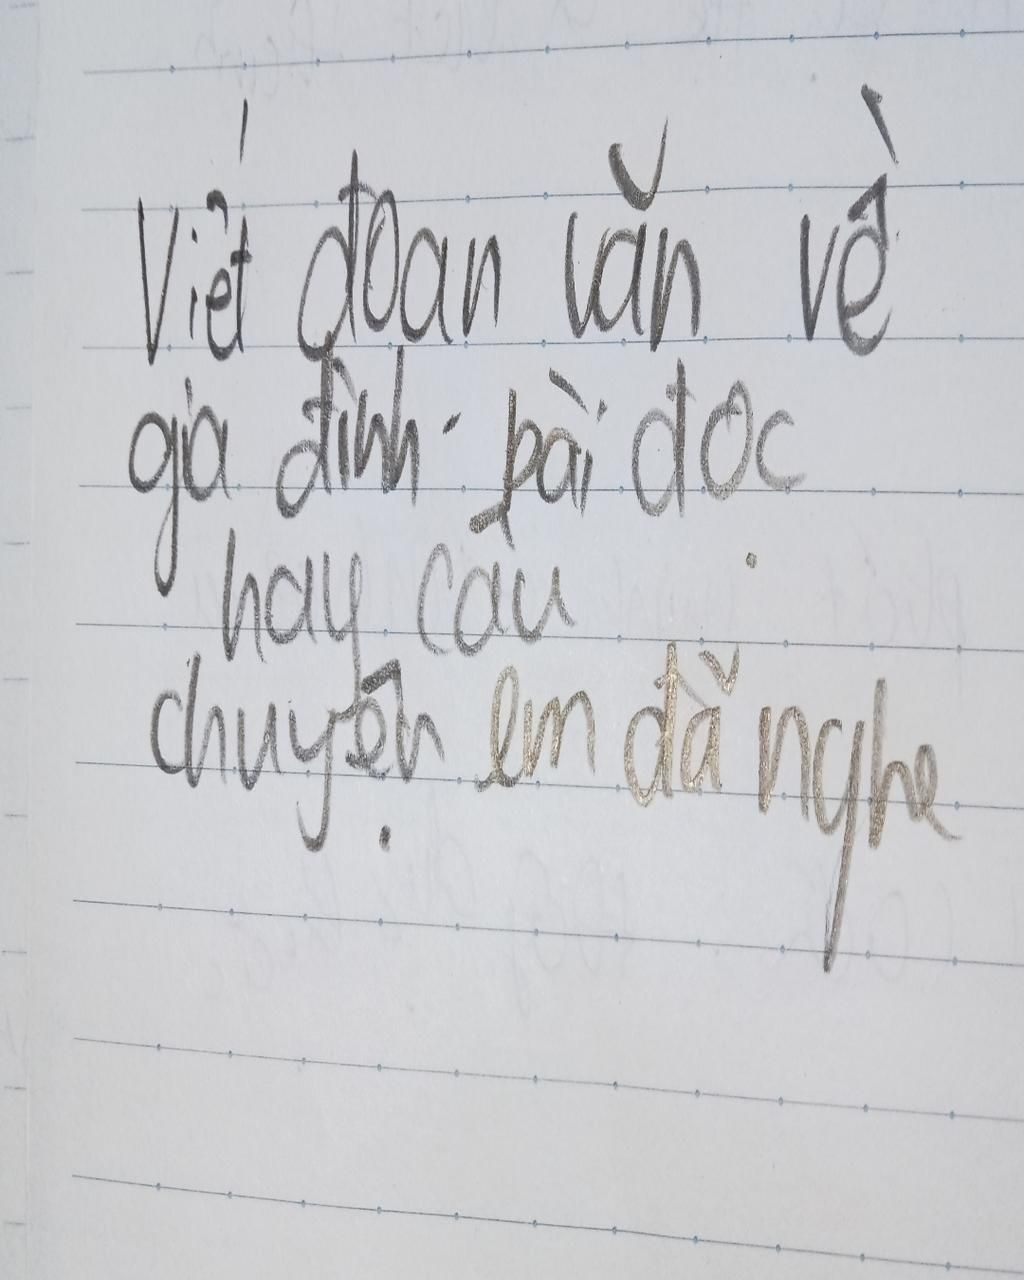 Viết đoạn văn về
gia đình. bài đọc
hay câu
chuyện em đã nghe